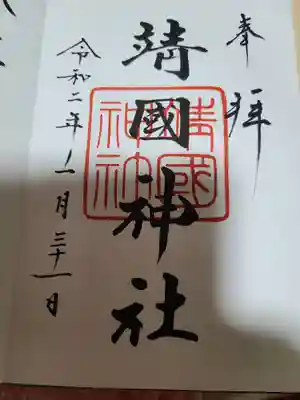 奉拝
靖國神社
靖國
神社
令和二年一月三十一日